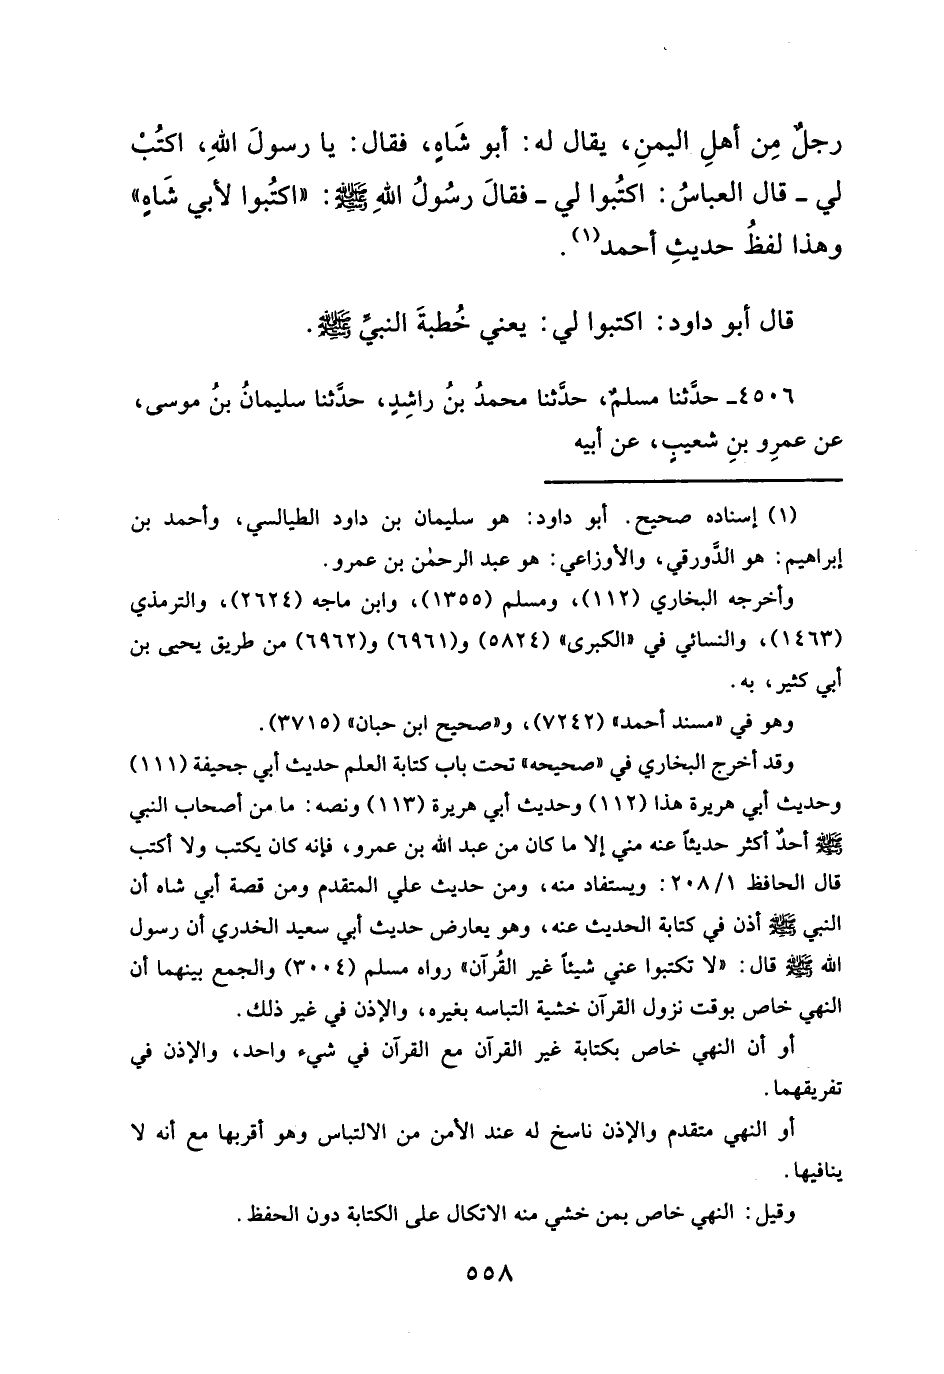 رجلٌ مِن أهلِ اليمنِ، يقال له: أبو شَاهٍ، فقال: يا رسولَ اللهِ، اكتُبْ
لي ـ قال العباسُ: اكتُبوا لي ـ فقالَ رسُولُ اللهِ ﷺ: «اكتُبوا لأبي شَاهٍ»
وهذا لفظُ حديثِ أحمد(١).
قال أبو داود: اكتبوا لي: يعني خُطبةَ النبيِّ ﷺ.
٤٥٠٦ـ حدَّثنا مسلمٌ، حدَّثنا محمدُ بنُ راشِدٍ، حدَّثنا سليمانُ بنُ موسى،
عن عمرِو بنِ شعيبٍ، عن أبيه
(١) إسناده صحيح. أبو داود: هو سليمان بن داود الطيالسي، وأحمد بن
إبراهيم: هو الدَّورقي، والأوزاعي: هو عبد الرحمٰن بن عمرو.
وأخرجه البخاري (١١٢)، ومسلم (١٣٥٥)، وابن ماجه (٢٦٢٤)، والترمذي
(١٤٦٣)، والنسائي في «الكبرى» (٥٨٢٤) و(٦٩٦١) و(٦٩٦٢) من طريق يحيى بن
أبي كثير، به.
وهو في «مسند أحمد» (٧٢٤٢)، و«صحيح ابن حبان» (٣٧١٥).
وقد أخرج البخاري في «صحيحه» تحت باب كتابة العلم حديث أبي جحيفة (١١١)
وحديث أبي هريرة هذا (١١٢) وحديث أبي هريرة (١١٣) ونصه: ما من أصحاب النبي
ﷺ أحدٌ أكثر حديثاً عنه مني إلا ما كان من عبد الله بن عمرو، فإنه كان يكتب ولا أكتب
قال الحافظ ٢٠٨/١: ويستفاد منه، ومن حديث علي المتقدم ومن قصة أبي شاه أن
النبي ﷺ أذن في كتابة الحديث عنه، وهو يعارض حديث أبي سعيد الخدري أن رسول
الله ﷺ قال: «لا تكتبوا عني شيئاً غير القُرآن» رواه مسلم (٣٠٠٤) والجمع بينهما أن
النهي خاص بوقت نزول القرآن خشية التباسه بغيره، والإذن في غير ذلك.
أو أن النهي خاص بكتابة غير القرآن مع القرآن في شيء واحد، والإذن في
تفريقهما.
أو النهي متقدم والإذن ناسخ له عند الأمن من الالتباس وهو أقربها مع أنه لا
ينافيها.
وقيل: النهي خاص بمن خشي منه الاتكال على الكتابة دون الحفظ.
٥٥٨